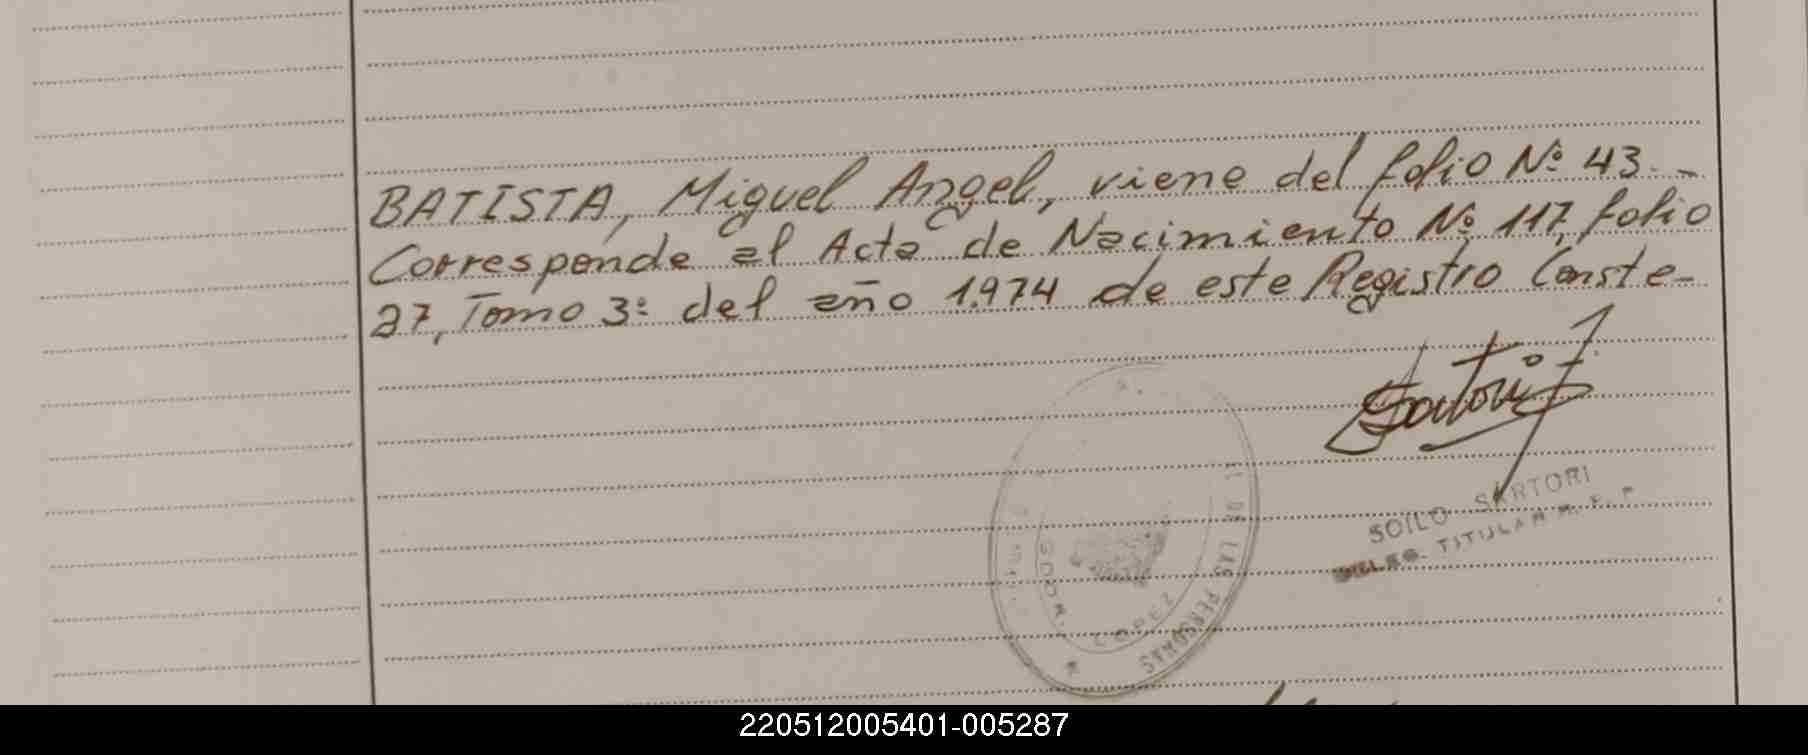 BATISTA, Miguel Angel, viene del folio Nº 43.-
Corresponde al Acta de Nacimiento Nº 117, folio
27, Tomo 3º del año 1.974 de este Registro Conste-
Sartori
SOILO SARTORI
TITULAR R. P. P
DE LAS PERSONAS
GDOR.
LOPEZ
220512005401-005287